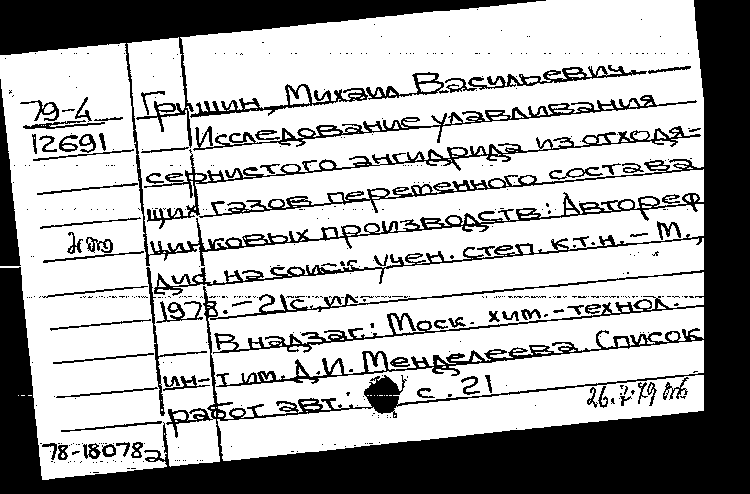 79-4
12691
Гришин, Михаил Васильевич.
Исследование улавливания
сернистого ангидрида из отходя-
щих газов переменного состава
цинковых производств: Автореф
дис. на соиск. учен. степ. к.т.н. - М.,
1978. - 21с., ил.
В надзаг.: Моск. хим.-технол.
ин-т им. Д.И. Менделеева. Список
работ авт.: с. 21
26.7.79
78-18078